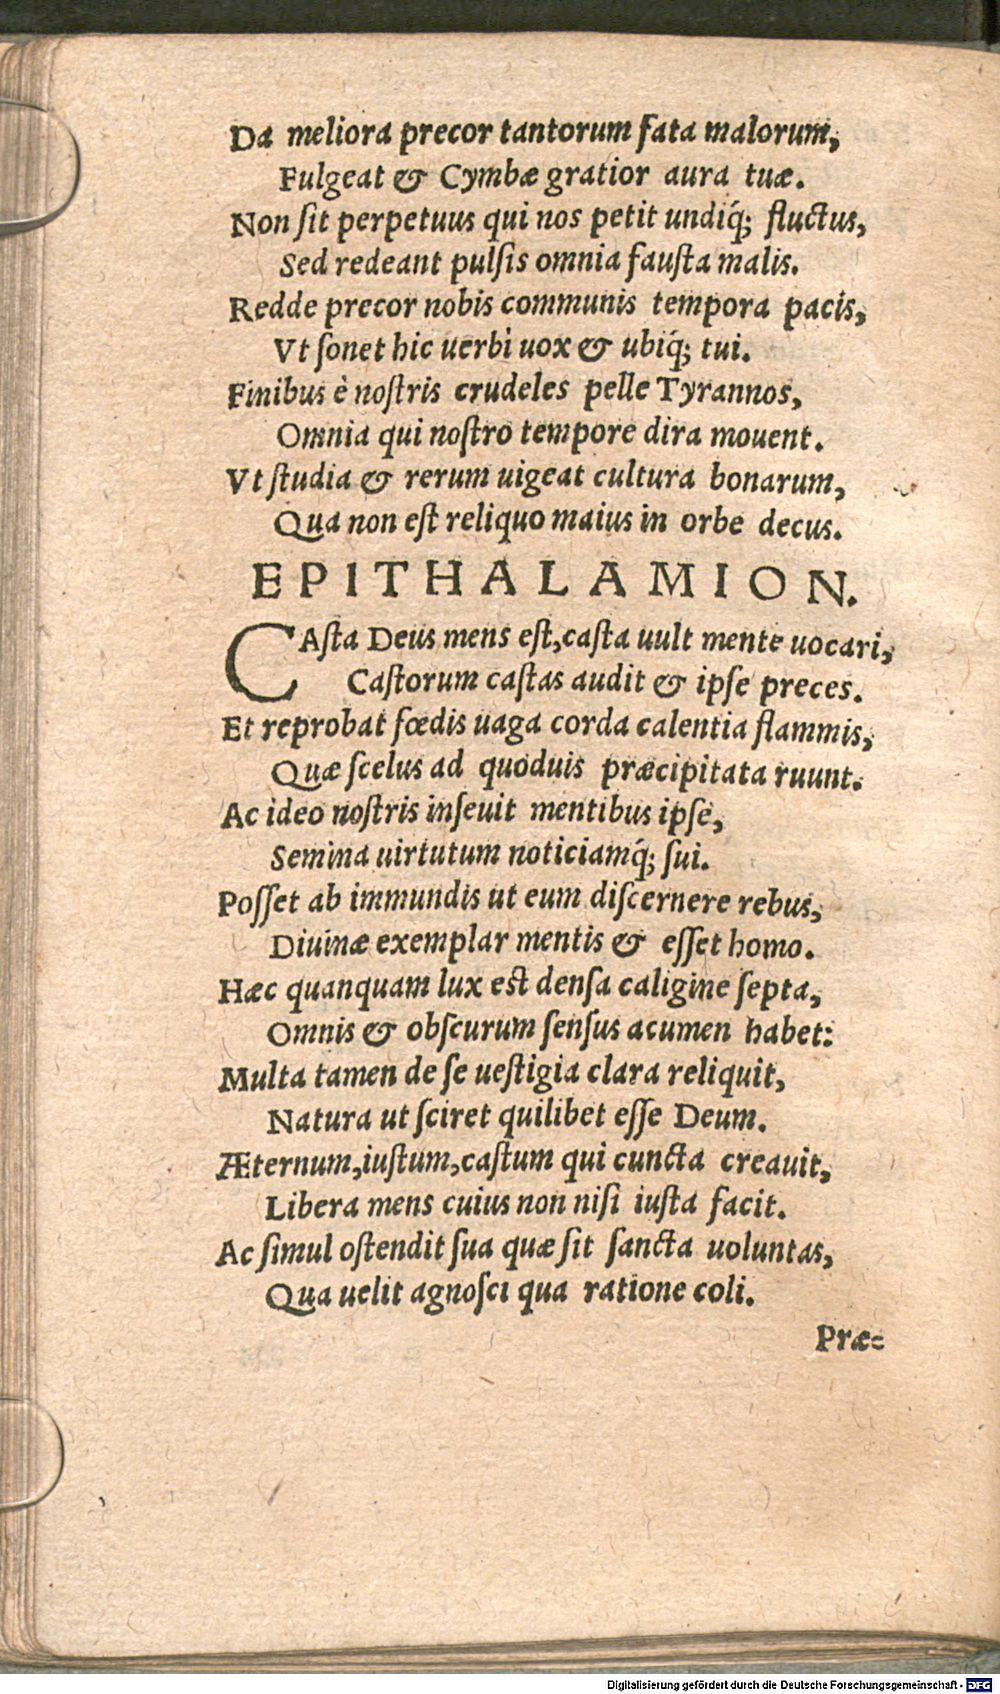 Da meliora precor tantorum fata malorum,
Fulgeat & Cymbæ gratior aura tuæ.
Non ſit perpetuus qui nos petit undiq́; fluctus,
Sed redeant pulſis omnia fauſta malis.
Redde precor nobis communis tempora pacis,
Vt ſonet hic uerbi uox & ubiq́; tui.
Finibus è noſtris crudeles pelle Tyrannos,
Omnia qui noſtro tempore dira mouent.
Vt ſtudia & rerum uigeat cultura bonarum,
Qua non eſt reliquo maius in orbe decus.
EPITHALAMION.
CAſta Deus mens eſt, caſta uult mente uocari,
Caſtorum caſtas audit & ipſe preces.
Et reprobat fœdis uaga corda calentia flammis,
Quæ ſcelus ad quoduis præcipitata ruunt.
Ac ideo noſtris inſeuit mentibus ipſe,
Semina uirtutum noticiamq́; ſui.
Poſſet ab immundis ut eum diſcernere rebus,
Diuinæ exemplar mentis & eſſet homo.
Hæc quanquam lux est denſa caligine ſepta,
Omnis & obſcurum ſenſus acumen habet:
Multa tamen de ſe ueſtigia clara reliquit,
Natura ut ſciret quilibet eſſe Deum.
Æternum, iuſtum, caſtum qui cuncta creauit,
Libera mens cuius non niſi iuſta facit.
Ac ſimul oſtendit ſua quæ ſit ſancta uoluntas,
Qua uelit agnoſci qua ratione coli.
Præ=
Digitalisierung gefördert durch die Deutsche Forschungsgemeinschaft - DFG